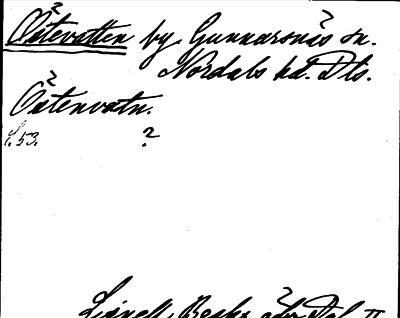 Östevatten by Gunnarsnäs sn.
Nordals hd. Dls.
Östenvatn.
S. 53. ?
Lignell, Beskr. öfv. Dal II